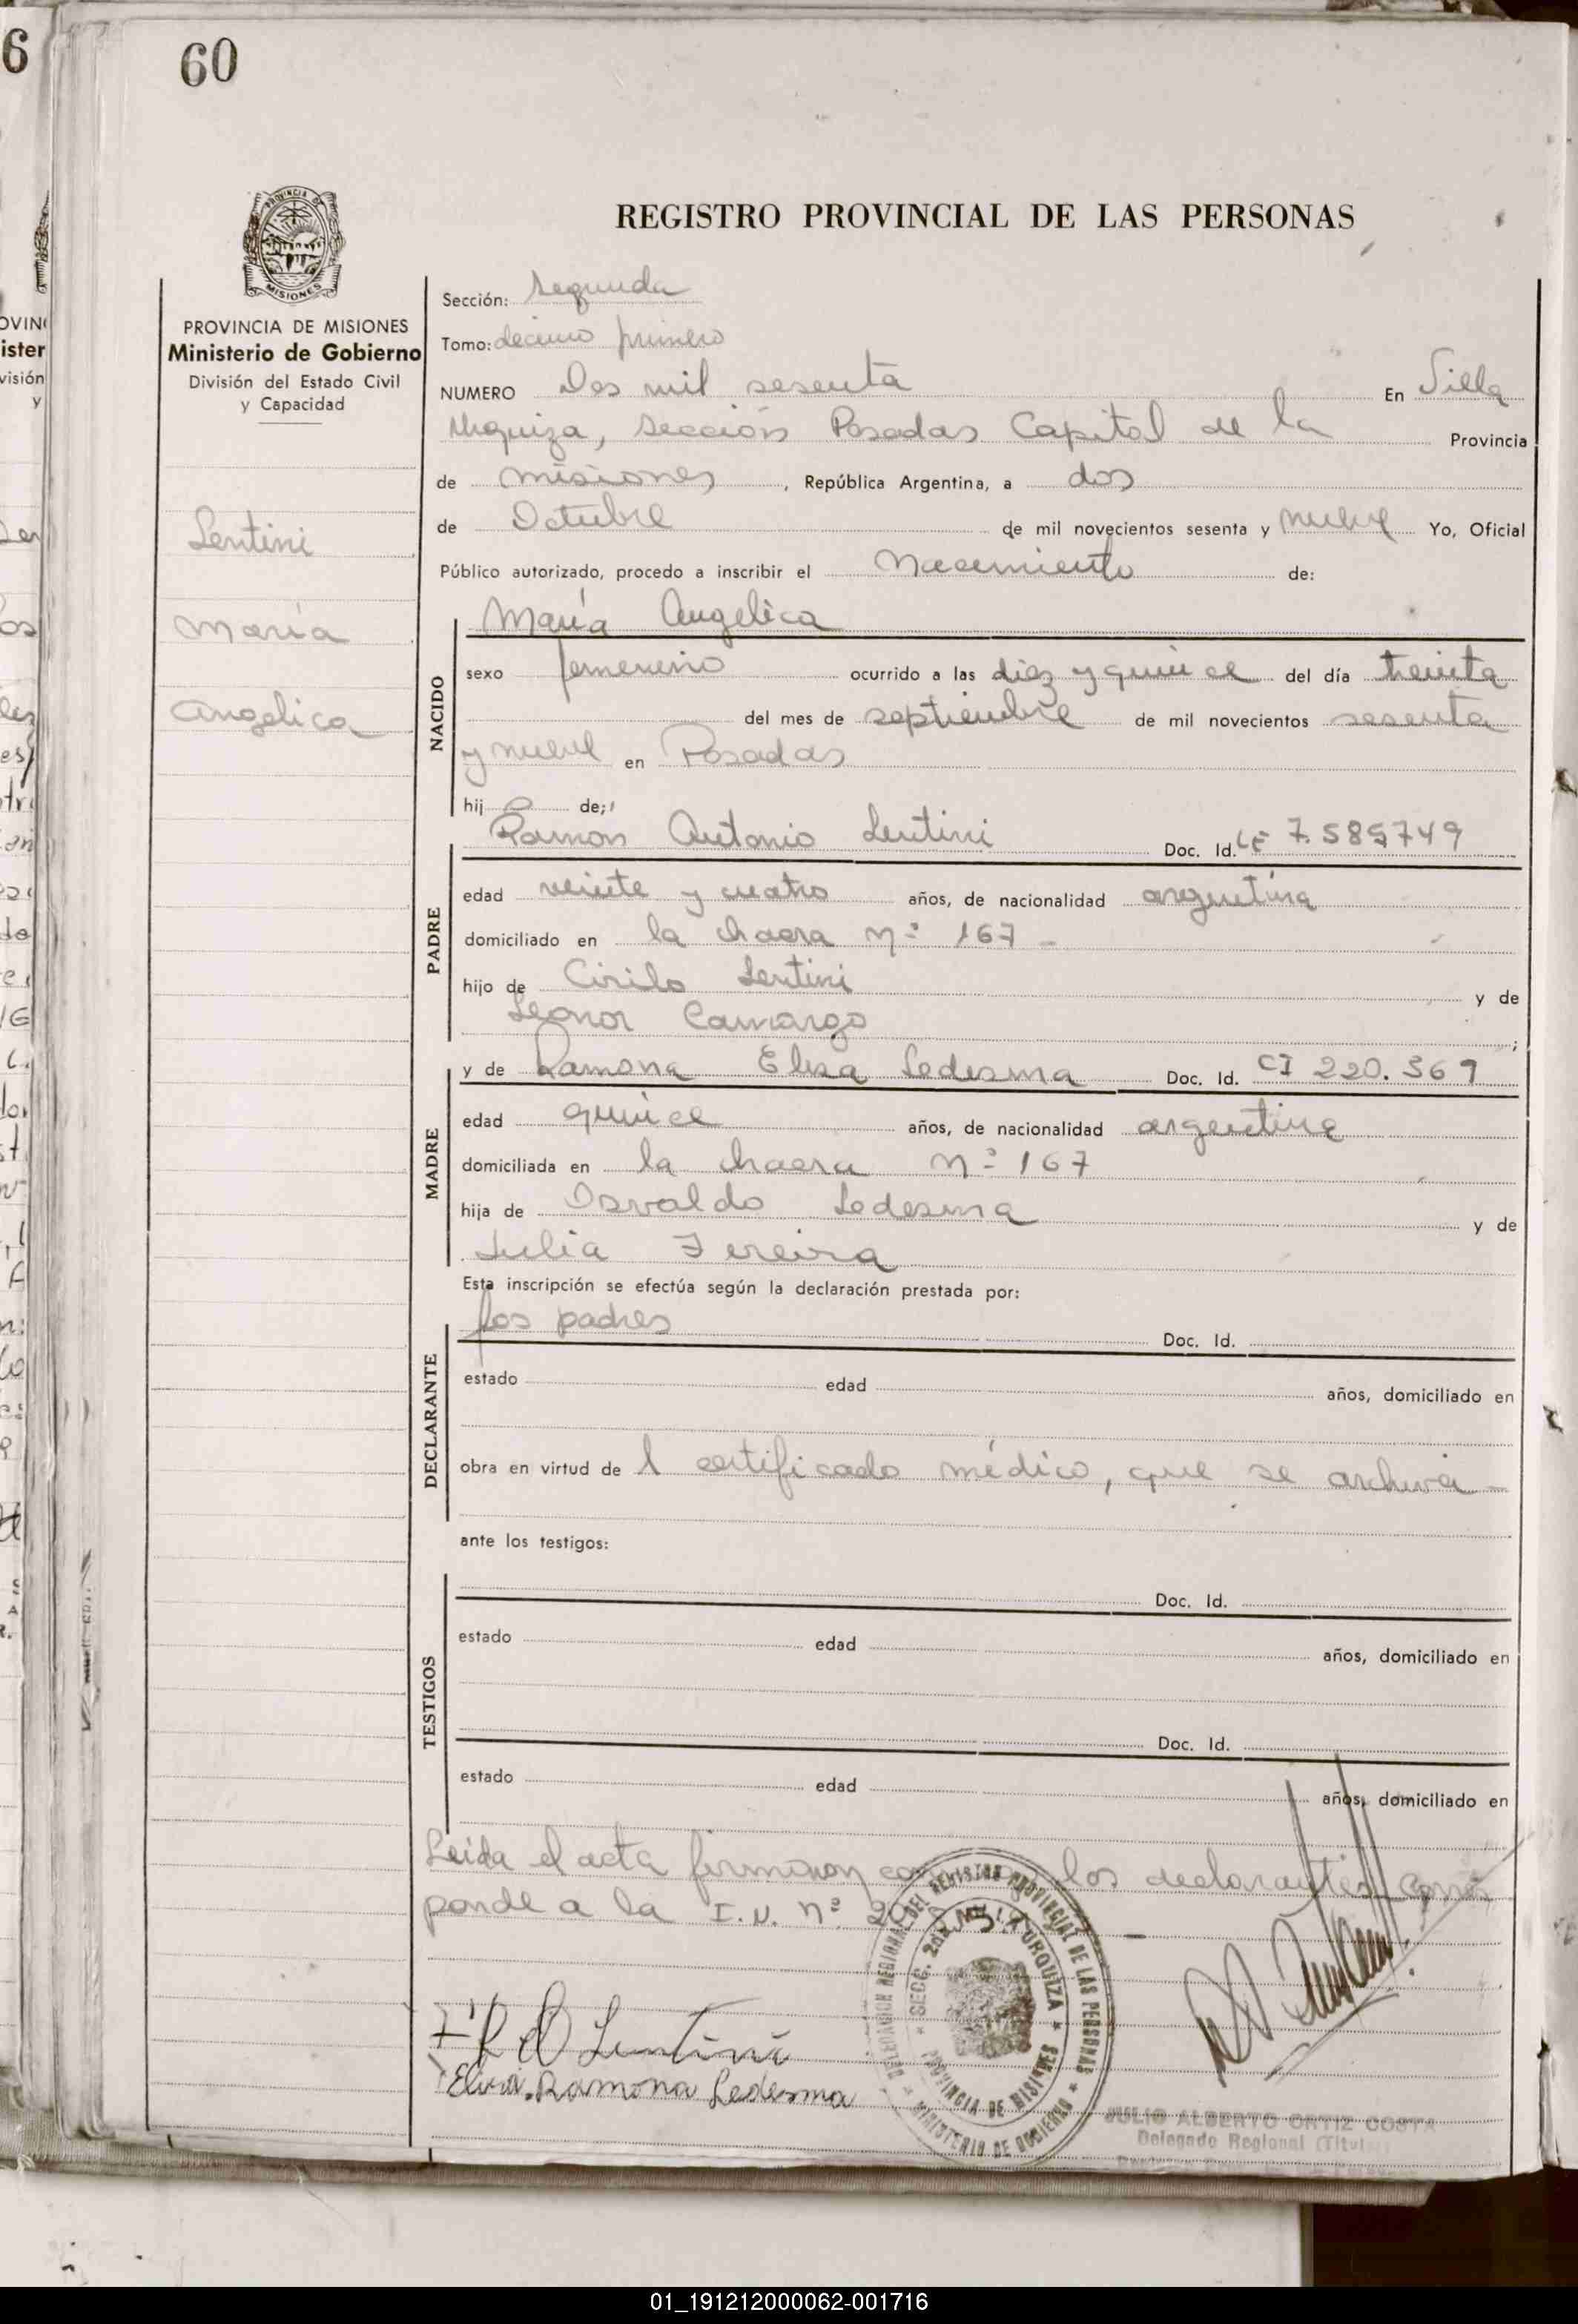 60
REGISTRO PROVINCIAL DE LAS PERSONAS
PROVINCIA DE MISIONES
Ministerio de Gobierno
División del Estado Civil
y Capacidad
Lentini
Maria
Angelica
Sección: Segunda
Tomo: decimo primero
NUMERO Dos mil sesenta En Villa
Urquiza, Sección Posadas Capital de la Provincia
de Misiones, República Argentina, a dos
de Octubre de mil novecientos sesenta y nueve Yo, Oficial
Público autorizado, procedo a inscribir el Nacimiento de:
NACIDO
María Angelica
sexo femenino ocurrido a las diez y quince del día treinta
del mes de septiembre de mil novecientos sesenta
y nueve en Posadas
hij a de;
PADRE
Ramon Antonio Lentini Doc. Id. LE 7.585749
edad veinte y cuatro años, de nacionalidad argentina
domiciliado en la chacra Nº 167 -
hijo de Cirilo Lentini y de
Leonor Camargo ;
MADRE
y de Ramona Elisa Ledesma Doc. Id. CI 220.369
edad quince años, de nacionalidad argentina
domiciliada en la chacra Nº 167
hija de Osvaldo Ledesma y de
Julia Fereira
Esta inscripción se efectúa según la declaración prestada por:
DECLARANTE
los padres Doc. Id.
estado edad años, domiciliado en
obra en virtud de l certificado médico, que se archiva -
ante los testigos:
TESTIGOS
Doc. Id.
estado edad años, domiciliado en
Doc. Id.
estado edad años, domiciliado en
Leida el acta firmaron los declarantes Corres
ponde a la I.N. nº
DELEGACION REGIONAL DEL REGISTRO PROVINCIAL DE LAS PERSONAS
SECC. 2da VILLA URQUIZA
PROVINCIA DE MISIONES
MINISTERIO DE GOBIERNO
R A Lentini
Elisa Ramona Ledesma
JULIO ALBERTO ORTIZ COSTA
Delegado Regional (Titul
01_191212000062-001716